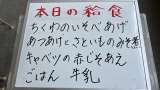 本日の給食
ちくわのいそべあげ
あつあげとさといものみそ煮
キャベツの赤じそあえ
ごはん 牛乳